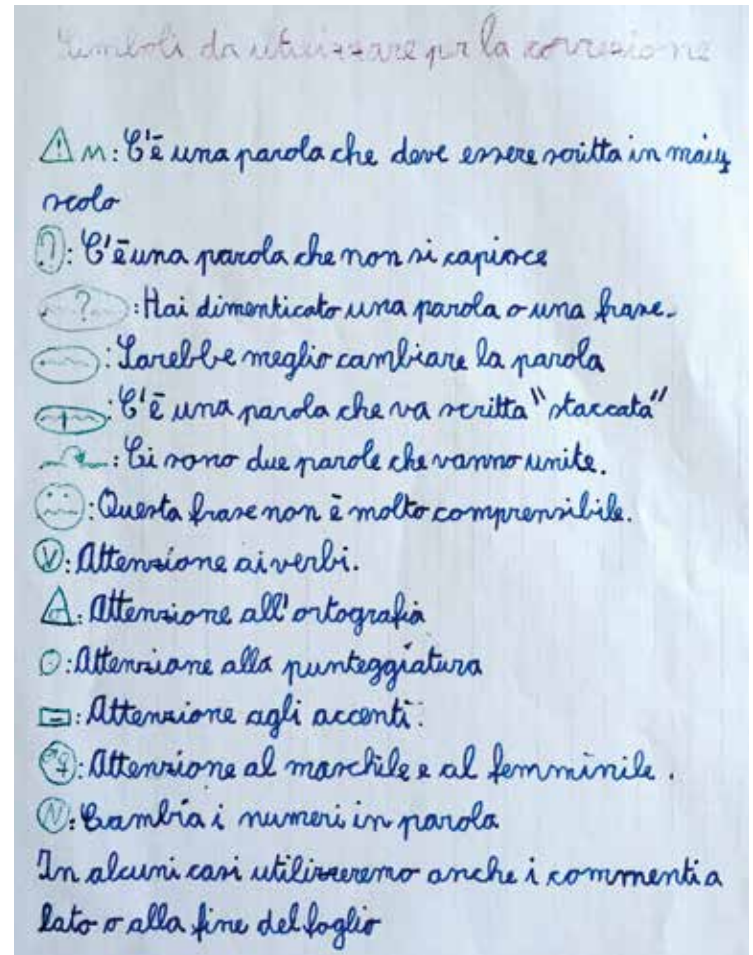 Simboli da utilizzare per la correzione
M: C'è una parola che deve essere scritta in maiu
scolo
?: C'è una parola che non si capisce
?: Hai dimenticato una parola o una frase.
: Sarebbe meglio cambiare la parola
: C'è una parola che va scritta "staccata"
: Ci sono due parole che vanno unite.
: Questa frase non è molto comprensibile.
V: Attenzione ai verbi.
: Attenzione all'ortografia
: Attenzione alla punteggiatura
: Attenzione agli accenti.
: Attenzione al maschile e al femminile.
N: Cambia i numeri in parola
In alcuni casi utilizzeremo anche i commenti a
lato o alla fine del foglio